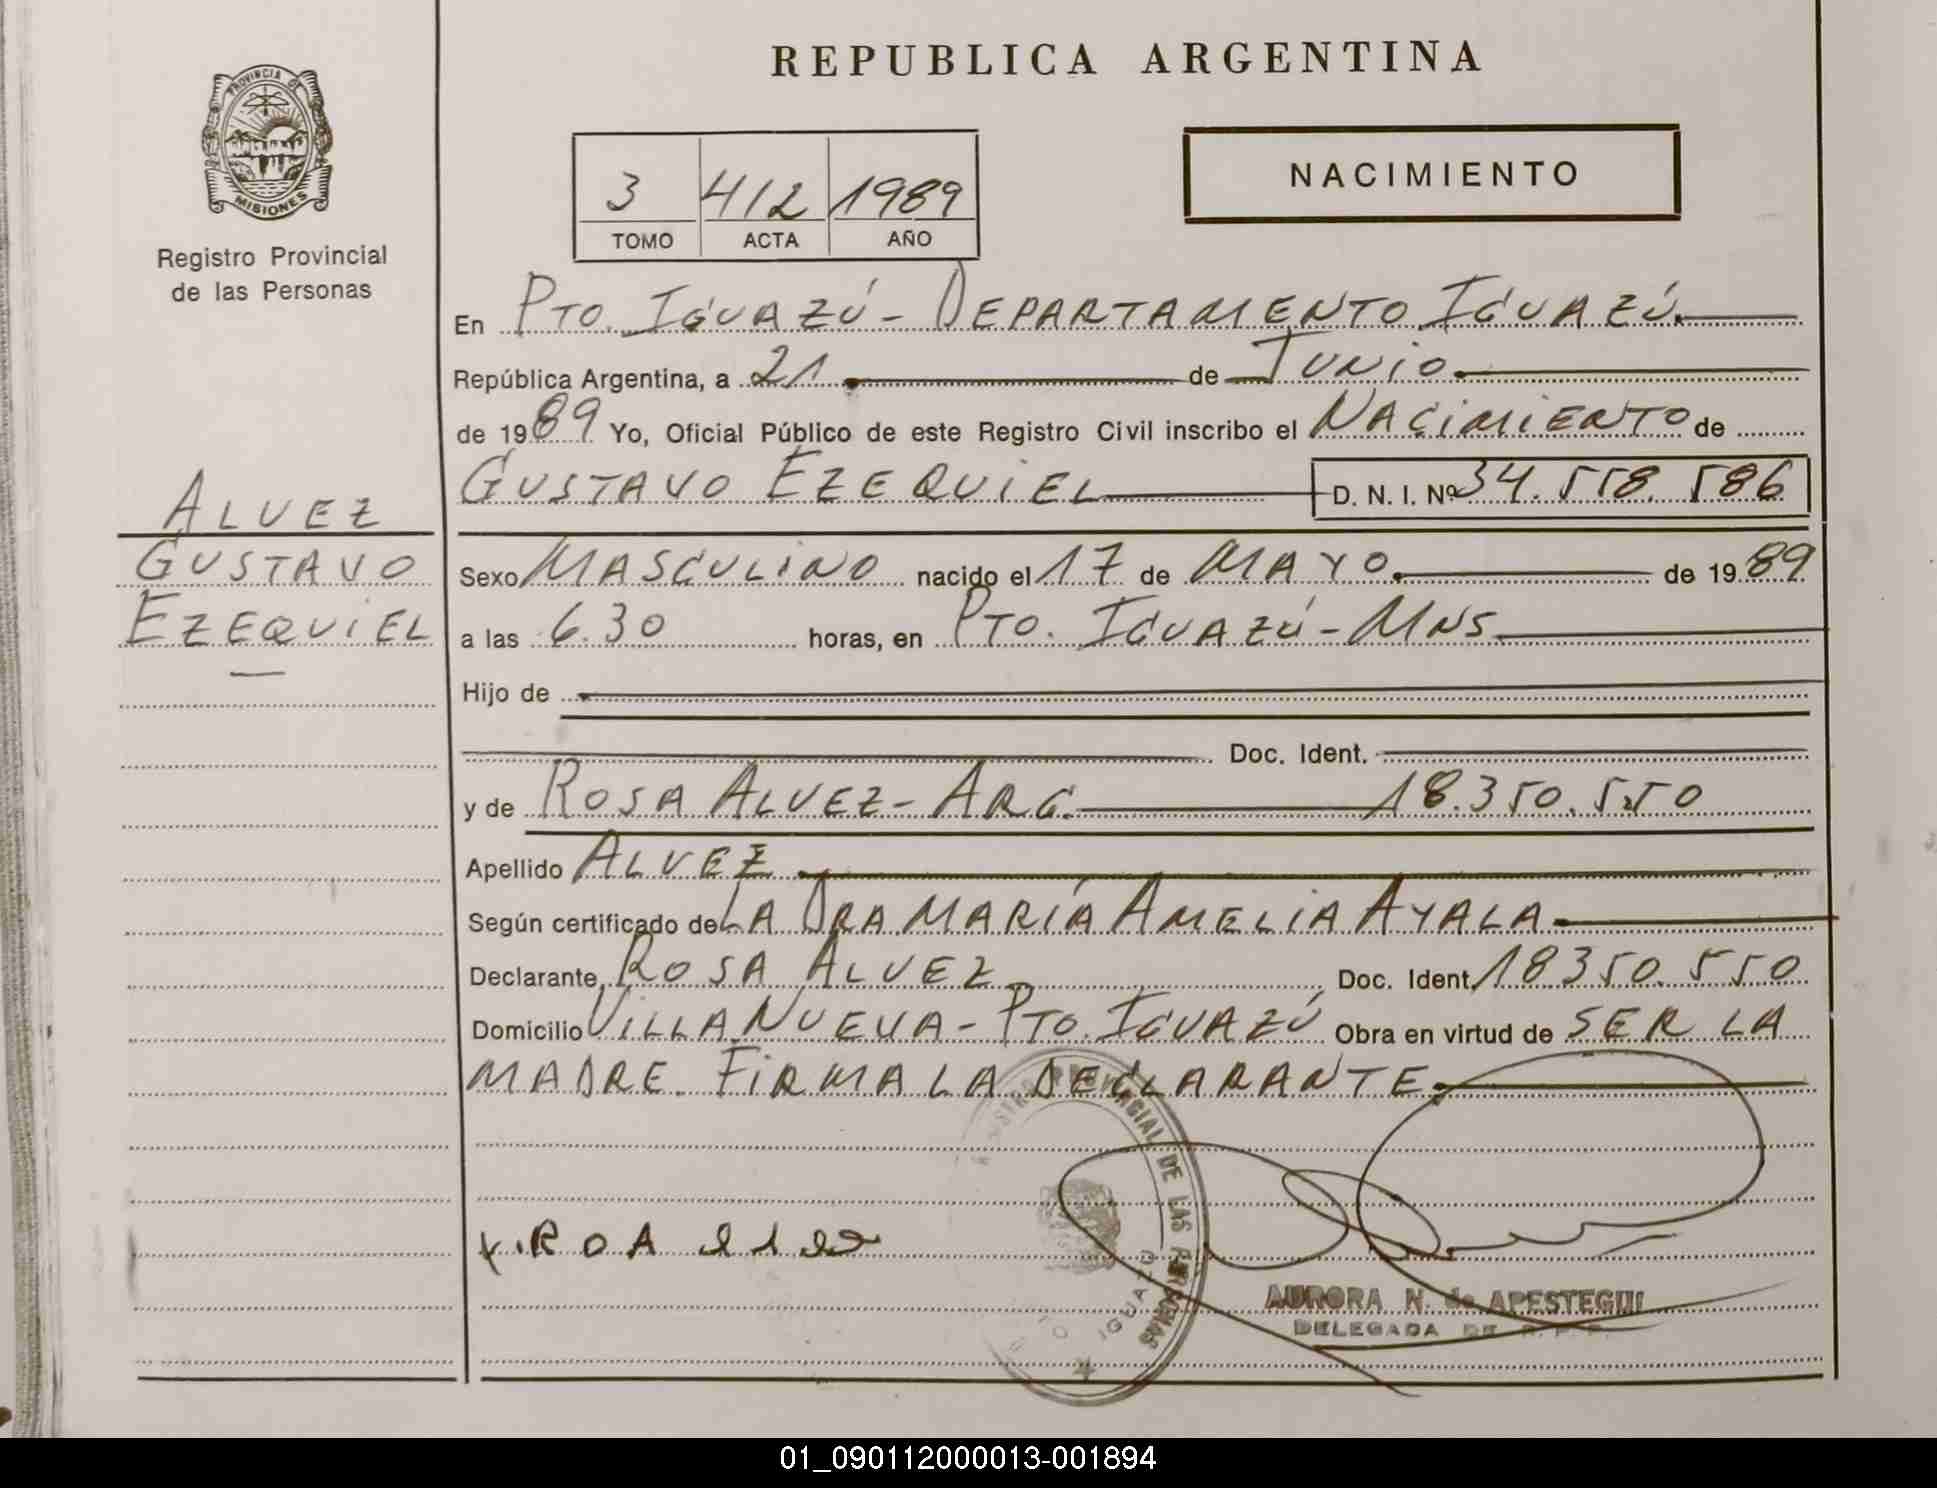 REPUBLICA ARGENTINA
PROVINCIA DE
MISIONES
Registro Provincial
de las Personas
3 412 1989
TOMO ACTA AÑO
NACIMIENTO
En PTO. IGUAZÚ - DEPARTAMENTO IGUAZÚ.
República Argentina, a 21 de JUNIO
de 1989 Yo, Oficial Público de este Registro Civil inscribo el NACIMIENTO de
GUSTAVO EZEQUIEL D. N. I. Nº 34.558.586
ALVEZ
GUSTAVO
EZEQUIEL
Sexo MASCULINO nacido el 17 de MAYO. de 1989
a las 6.30 horas, en PTO. IGUAZÚ - MNS
Hijo de
Doc. Ident.
y de ROSA ALVEZ - ARG. 18.350.550
Apellido ALVEZ
Según certificado de LA DRA MARÍA AMELIA AYALA
Declarante, ROSA ALVEZ Doc. Ident. 18350.550
Domicilio VILLA NUEVA - PTO. IGUAZÚ Obra en virtud de SER LA
MADRE. FIRMA LA DECLARANTE.
REGISTRO PROVINCIAL DE LAS PERSONAS
IGUAZU
AURORA N. de APESTEGUI
DELEGADA DE R. P. P.
01_090112000013-001894